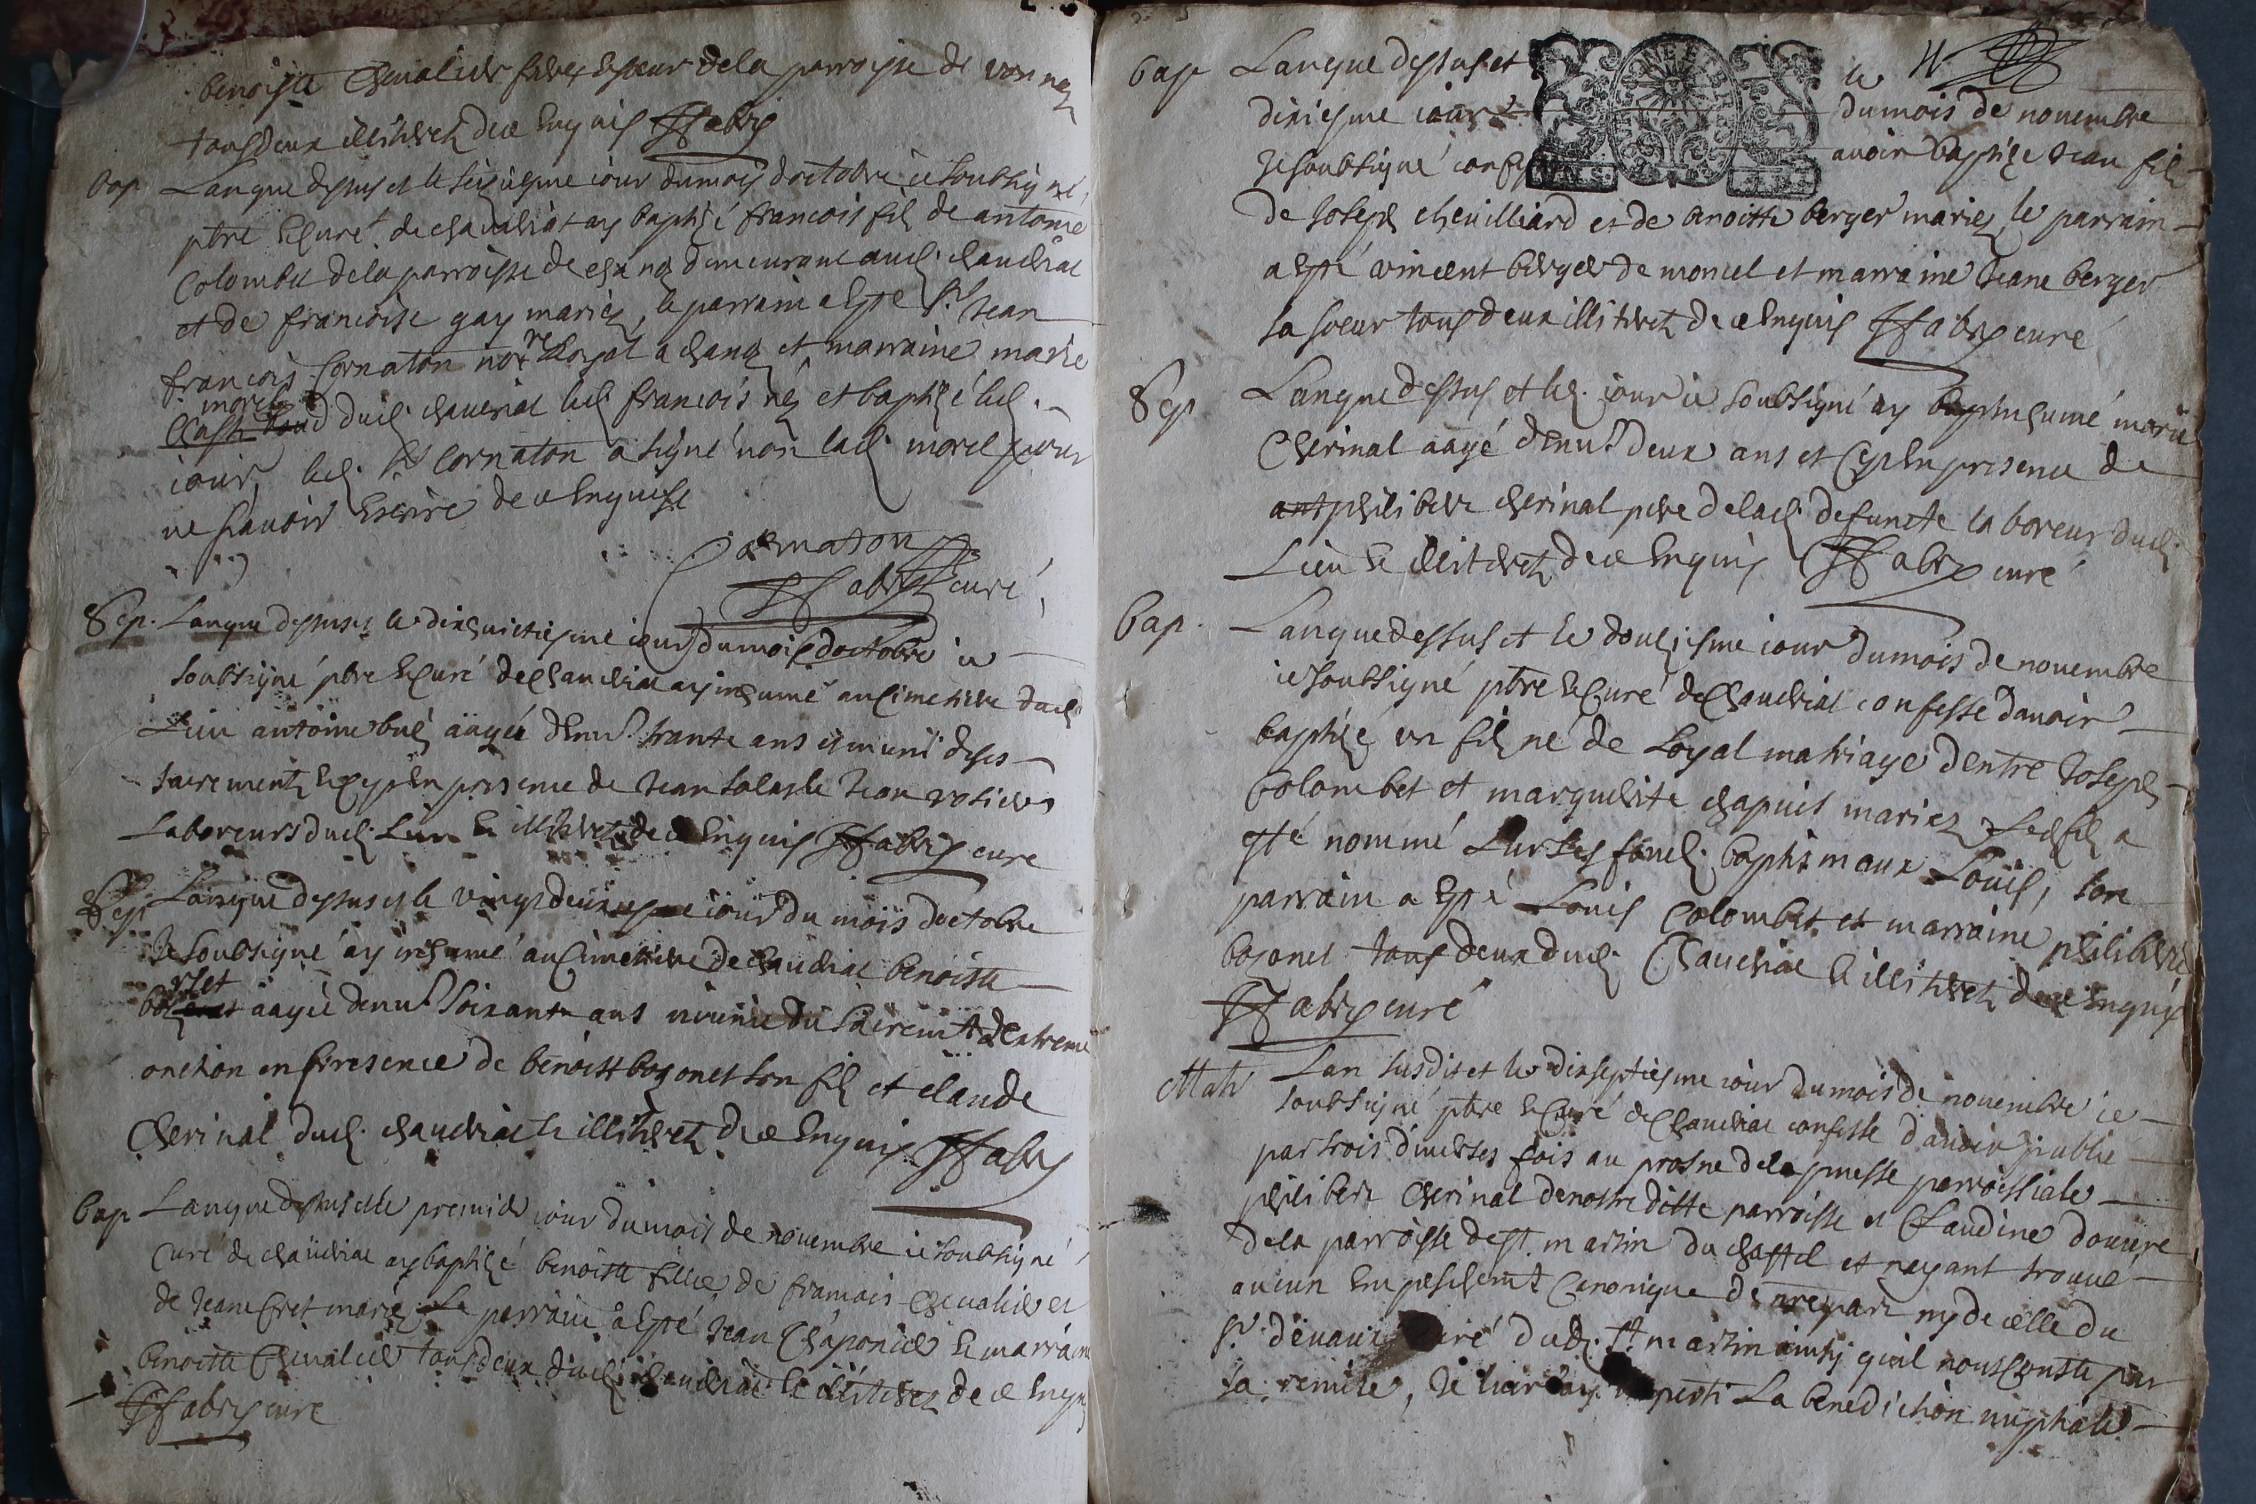 benoiste Chevalier frere et soeur de la parroisse de vonnaz
tous deux illitterez de ce enquis JFabry
bap. Lan que dessus et le seiziesme iour du mois doctobre ie soubsigné
ptre et curé de chaveriat ay baptizé francois filz de antoine
Colombet de la parroisse de chanoz demeurant aud. chaveriat
et de francoise gay mariez, le parrain a esté Sr. Jean
francois Cornaton notre Royal a chanoz et marraine marie
morel
dud. chaveriat led. francois néz et baptizé led.
iour, led. Sr Cornaton a signé non lad. morel pour
ne scavoir escrire de ce enquise
Cornaton
JFabry curé
Sep. Lan que dessus et le dixhuictiesme iour du mois doctobre ie
soubsigné ptre et curé de Chaveriat ay inhumé au cimetiere dud.
Lieu antoine buéz aagée denv. trante ans et muni de ses
sacrementz et ce en presence de Jean Jean rosier
Laboreurs dud. Lieu et illiterez de ce enquis JFabry curé
Sep. Lan que dessus et le vingt deuxiesme iour du mois doctobre
Je soubsigné ay inhumé au Cimetiere de Chaveriat benoiste
aagée denv. soixante ans munie du sacremt dextreme
onction en presence de benoist bozonet son filz et claude
Cherinal dud. chaveriat et illitterez de ce enquis JFabry
bap Lan que dessus et le premier iour du mois de novembre ie soubsigné
Curé de chaveriat ay baptizé benoiste fillie de francois Chevalier et
de Jeane fret mariez Le parrain a esté Jean Chaponier et marraine
benoiste Chevalier tous deux dud. chaveriat et illiterez de ce enquis
JFabry curé
bap Lan que dessus et le
dixiesme iour du mois de novembre
Je soubsigné confesse avoir baptize Jean filz
de Joseph chevilliard et de benoitte berger mariez le parrain
a esté vincent berger de moncel et marraine Jeane berger
sa soeur tous deux illiterez de ce enquis JFabry curé
Sep. Lan que dessus et led. iour ie soubsigné ay inhumé marie
Cherinal aagé denv. deux ans et ce en presence de
philibert cherinal pere de lad. defuncte laboreur dud.
Lieu et illiterez de ce enquis JFabry curé
bap. Lan que dessus et le douziesme iour du mois de novembre
ie soubsigné ptre et Curé de Chaveriat confesse davoir
baptizé un filz né de Loyal mariage dentre Joseph
Colombet et marguerite chapuis mariez, Led. filz a
esté nommé sur les fond. baptismaux Louis, son
parrain a esté Louis Colombet et marraine philiberte
bozonet tous deux dud. Chaveriat et illiterez de ce enquis
JFabry curé
Mar Lan susdit et le dixseptiesme iour du mois de novembre ie
soubsigné ptre et Curé de Chaveriat confesse davoir publié
par trois diverses fois au prosne de la messe parroissiale
philibert Cherinal de nostre ditte parroisse et Claudine
de la parroisse de st. martin du chastel et nayant trouvé
aucun empeschemt Canonique de nre part ny de celle du
Sr. devaux curé dud. st. martin ainsy quil nous conste par
sa remise, Je leur ay imparti La benediction nuptiale